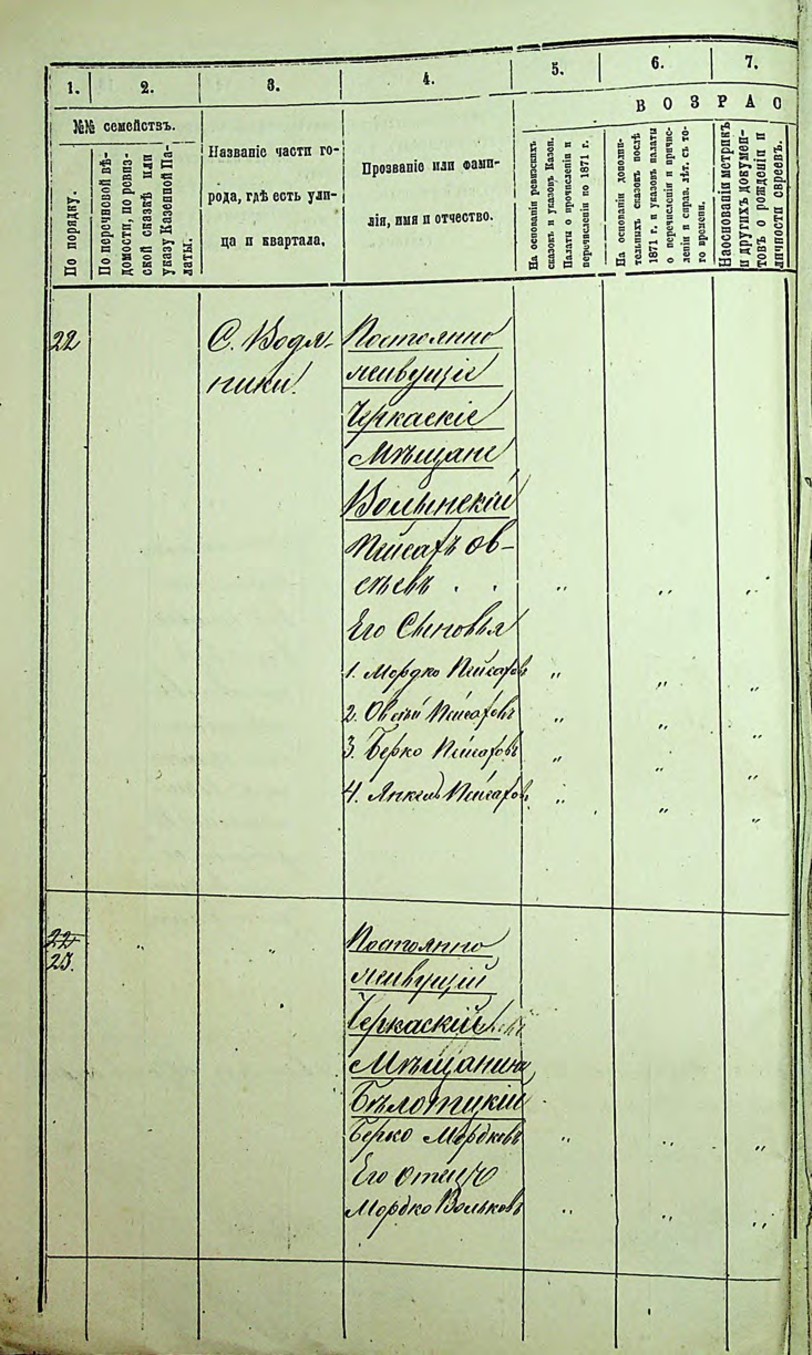 1.
2.
3.
4.
5.
6.
7.
ВОЗРАС
№№ семействъ.
По порядку.
По перечновой вѣ-
домости, по ревиз-
ской сказкѣ или
указу Казенной Па-
латы.
Названіе части го-
рода, гдѣ есть ули-
ца и квартала.
Прозваніе или фами-
лія, имя и отчество.
На основаніи ревизскихъ
сказокъ и указовъ Казен.
Палаты о прочисленіи и
перечисленіи по 1871 г.
На основаніи дополни-
тельныхъ сказокъ послѣ
1871 г. и указовъ палаты
о перечисленіи и причис-
леніи и справ. лѣт. съ то-
го времени.
На основаніи метрикъ
и другихъ докумен-
товъ о рожденіи и
личности евреевъ.
22
С. Водя-
ники.
Постоянно
живущіе
Черкаскіе
Мѣщане
Волынскій
Пейсахъ Ов-
сѣевъ . . „ „ „
Его Сыновья
1. Мордко Пейсаховъ „ „ „
2. Овсѣй Пейсаховъ „ „ „
3. Берко Пейсаховъ „ „ „
4. Янкель Пейсаховъ „ „ „
22
23.
„ „
Постоянно
живущій
Черкаскій
Мѣщанинъ
Бѣлотцкій
Берко Мордковъ „ „ „
Его Отецъ
Мордко Вольковъ „ „ „